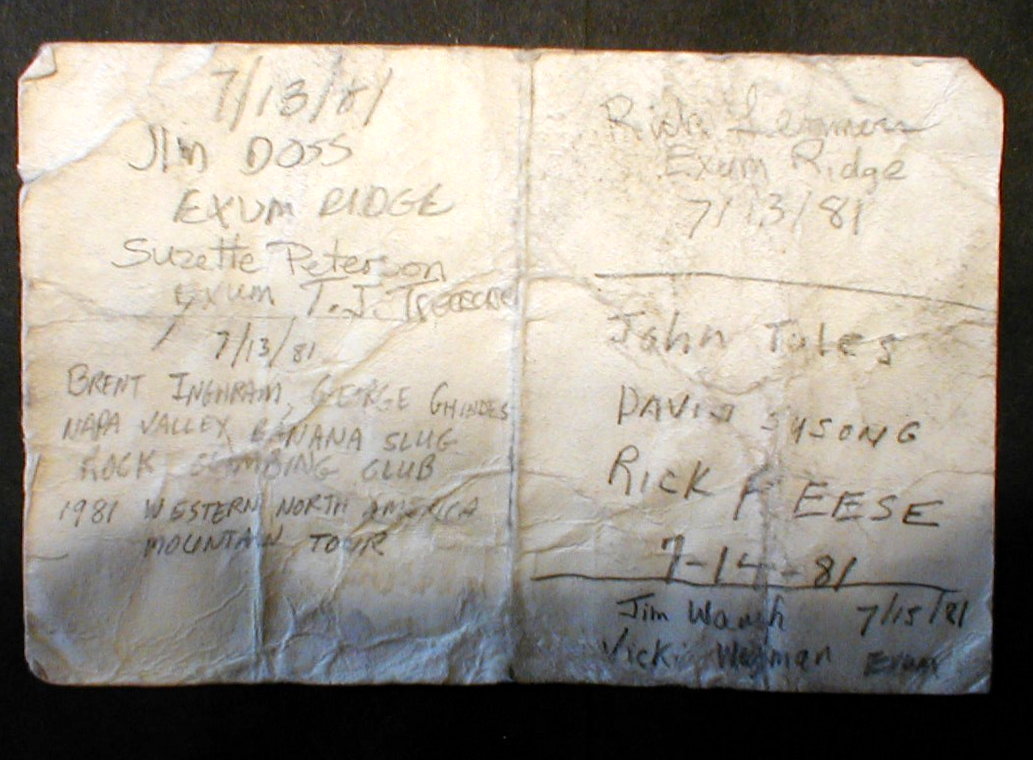 7/13/81
Jim Doss
EXUM RIDGE
Suzette Peterson
Exum T.J.
7/13/81
BRENT INGHRAM, GEORGE GHINDES
NAPA VALLEY BANANA SLUG
ROCK CLIMBING CLUB
1981 WESTERN NORTH AMERICA
MOUNTAIN TOUR
Rick
Exum Ridge
7/13/81
John
DAVID SYSONG
RICK REESE
7-14-81
Jim 7/15/81
Vicki Wagman EXUM